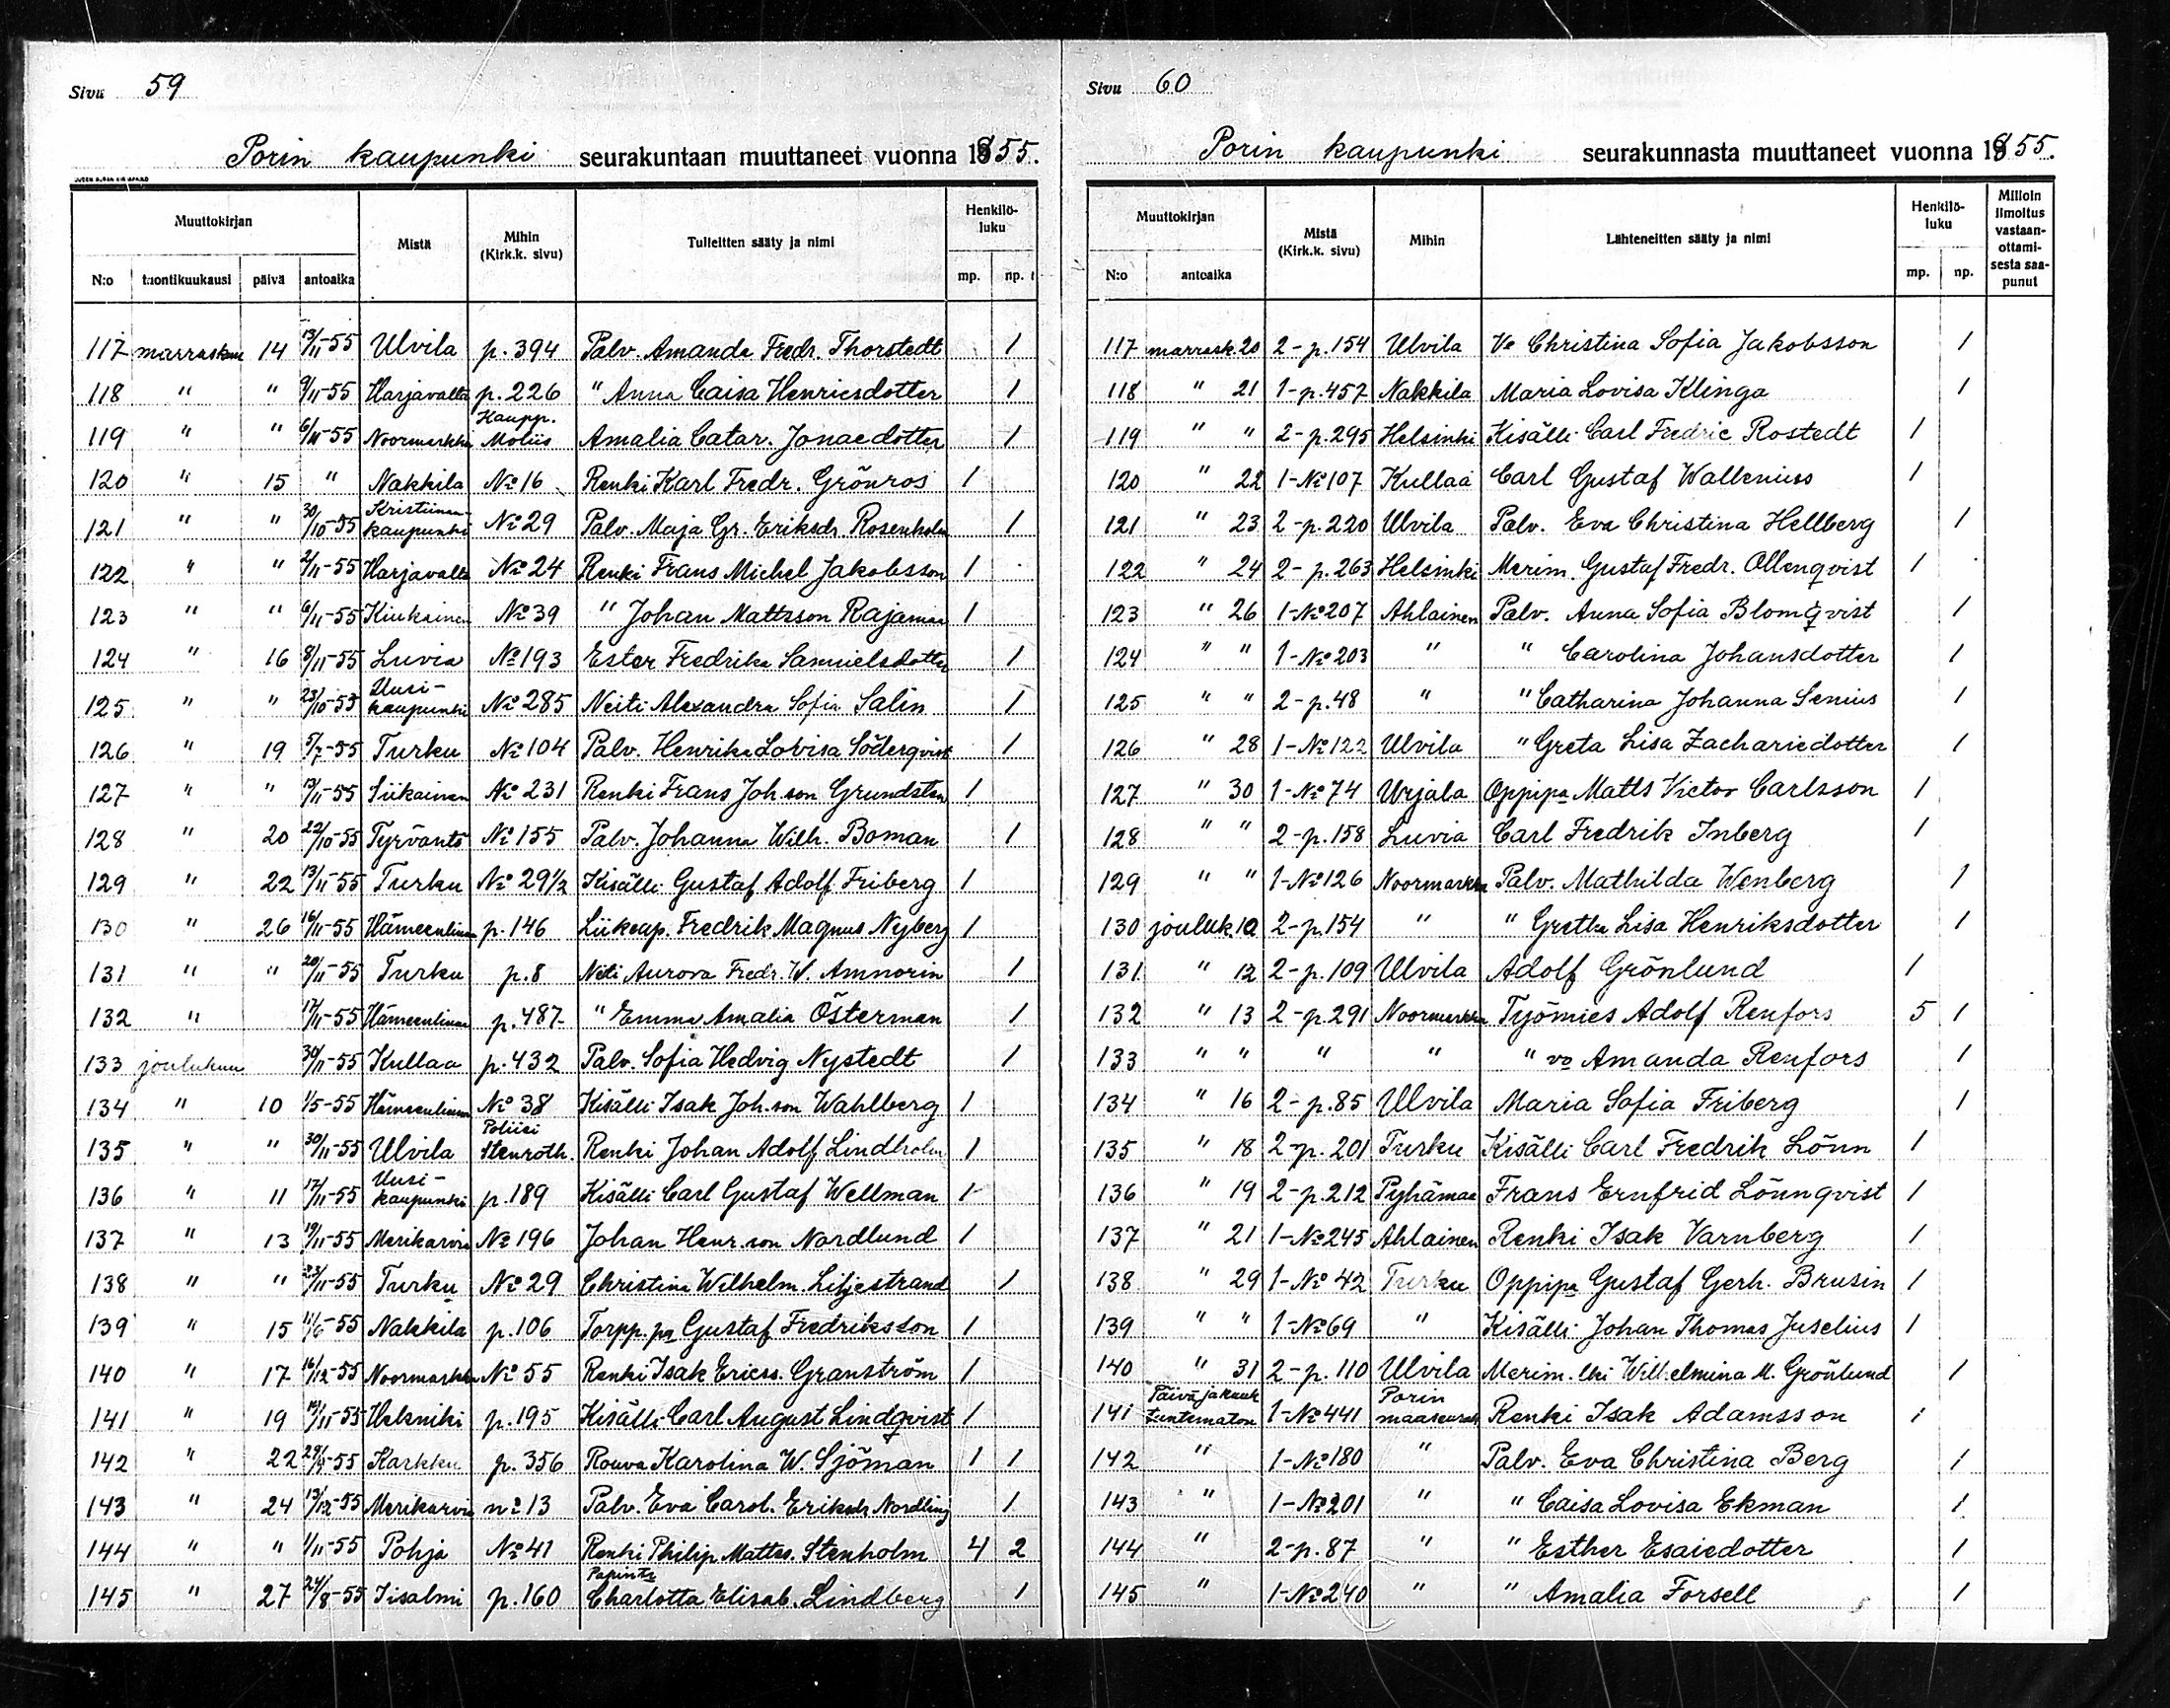 Sivu 59
Porin kaupunki seurakuntaan muuttaneet vuonna 1855.
Muuttokirjan Mistä Mihin (Kirk.k. sivu) Tulleitten sääty ja nimi Henkilö-luku
N:o tuontikuukausi päivä antoaika mp. np.
117 marraskuu 14 13/11-55 Ulvila p. 394 Palv. Amanda Fredr. Thorstedt 1
118 " " 9/11-55 Harjavalta p. 226 " Anna Caisa Henricsdotter 1
119 " " 6/11-55 Noormarkku Kaupp. Moliis Amalia Catar. Jonaedotter 1
120 " 15 " Nakkila No 16 Renki Karl Fredr. Grönros 1
121 " " 30/10-55 Kristiinan-kaupunki No 29 Palv. Maja Gr. Eriksdr. Rosenholm 1
122 " " 2/11-55 Harjavalta No 24 Renki Frans Michel Jakobsson 1
123 " " 6/11-55 Kiukainen No 39 " Johan Mattsson Rajamaa 1
124 " 16 8/11-55 Luvia No 193 Ester Fredrika Samuelsdotter 1
125 " " 23/10-55 Uusi-kaupunki No 285 Neiti Alexandra Sofia Salin 1
126 " 19 5/7-55 Turku No 104 Palv. Henrika Lovisa Söderqvist 1
127 " " 13/11-55 Siikainen No 231 Renki Frans Joh.son Grundsten 1
128 " 20 22/10-55 Tyrväntö No 155 Palv. Johanna Wilh. Boman 1
129 " 22 13/11-55 Turku No 29 1/2 Kisälli Gustaf Adolf Friberg 1
130 " 26 16/11-55 Hämeenlinna p. 146 Liikeap. Fredrik Magnus Nyberg 1
131 " " 20/11-55 Turku p. 8 Neiti Aurora Fredr. W. Amnorin 1
132 " 17/11-55 Hämeenlinna p. 487 " Emma Amalia Österman 1
133 joulukuu 30/11-55 Kullaa p. 432 Palv. Sofia Hedvig Nystedt 1
134 " 10 1/5-55 Hämeenlinna No 38 Kisälli Isak Joh.son Wahlberg 1
135 " " 30/11-55 Ulvila Poliisi Stenroth. Renki Johan Adolf Lindholm 1
136 " 11 17/11-55 Uusi-kaupunki p. 189 Kisälli Carl Gustaf Wellman 1
137 " 13 19/11-55 Merikarvia No 196 Johan Henr.son Nordlund 1
138 " " 23/11-55 Turku No 29 Christina Wilhelm. Liljestrand 1
139 " 15 11/6-55 Nakkila p. 106 Torpp.pa Gustaf Fredriksson 1
140 " 17 16/12-55 Noormarkku No 55 Renki Isak Ericss. Granström 1
141 " 19 19/11-55 Helsinki p. 195 Kisälli Carl August Lindqvist 1
142 " 22 29/9-55 Karkku p. 356 Rouva Karolina W. Sjöman 1 1
143 " 24 13/12-55 Merikarvia no 13 Palv. Eva Carol. Eriksdr Nordling 1
144 " " 1/11-55 Pohja No 41 Renki Philip Mattss. Stenholm 4 2
145 " 27 24/8-55 Iisalmi p. 160 Charlotta Elisab. Lindberg 1
Sivu 60
Porin kaupunki seurakunnasta muuttaneet vuonna 1855.
Muuttokirjan Mistä (Kirk.k. sivu) Mihin Lähteneitten sääty ja nimi Henkilö-luku Milloin ilmoitus vastaan-ottami-sesta saa-punut
N:o antoaika mp. np.
117 marrask. 20 2-p. 154 Ulvila Vo Christina Sofia Jakobsson 1
118 " 21 1-p. 457 Nakkila Maria Lovisa Klinga 1
119 " " 2-p. 295 Helsinki Kisälli Carl Fredric Rostedt 1
120 " 22 1-No 107 Kullaa Carl Gustaf Wallenius 1
121 " 23 2-p. 220 Ulvila Palv. Eva Christina Hellberg 1
122 " 24 2-p. 263 Helsinki Merim. Gustaf Fredr. Ollenqvist 1
123 " 26 1-No 207 Ahlainen Palv. Anna Sofia Blomqvist 1
124 " " 1-No 203 " " Carolina Johansdotter 1
125 " " 2-p. 48 " " Catharina Johanna Senius 1
126 " 28 1-No 122 Ulvila " Greta Lisa Zachariedotter 1
127 " 30 1-No 74 Urjala Oppipa Matts Victor Carlsson 1
128 " " 2-p. 158 Luvia Carl Fredrik Inberg 1
129 " " 1-No 126 Noormarkku Palv. Mathilda Wenberg 1
130 jouluk. 10 2-p. 154 " " Gretha Lisa Henriksdotter 1
131 " 12 2-p. 109 Ulvila Adolf Grönlund 1
132 " 13 2-p. 291 Noormarkku Työmies Adolf Renfors 5 1
133 " " " " " vo Amanda Renfors 1
134 " 16 2-p. 85 Ulvila Maria Sofia Friberg 1
135 " 18 2-p. 201 Turku Kisälli Carl Fredrik Lönn 1
136 " 19 2-p. 212 Pyhämaa Frans Ernfrid Lönnqvist 1
137 " 21 1-No 245 Ahlainen Renki Isak Varnberg 1
138 " 29 1-No 42 Turku Oppipa Gustaf Gerh. Brusin 1
139 " " 1-No 69 " Kisälli Johan Thomas Juselius 1
140 " 31 2-p. 110 Ulvila Merim. lki Wilhelmina M. Grönlund 1
141 Päivä ja kuuk tuntematon 1-No 441 Porin maaseurak Renki Isak Adamsson 1
142 " 1-No 180 " Palv. Eva Christina Berg 1
143 " 1-No 201 " " Caisa Lovisa Ekman 1
144 " 2-p. 87 " " Esther Esaiedotter 1
145 " 1-No 240 " " Amalia Forsell 1